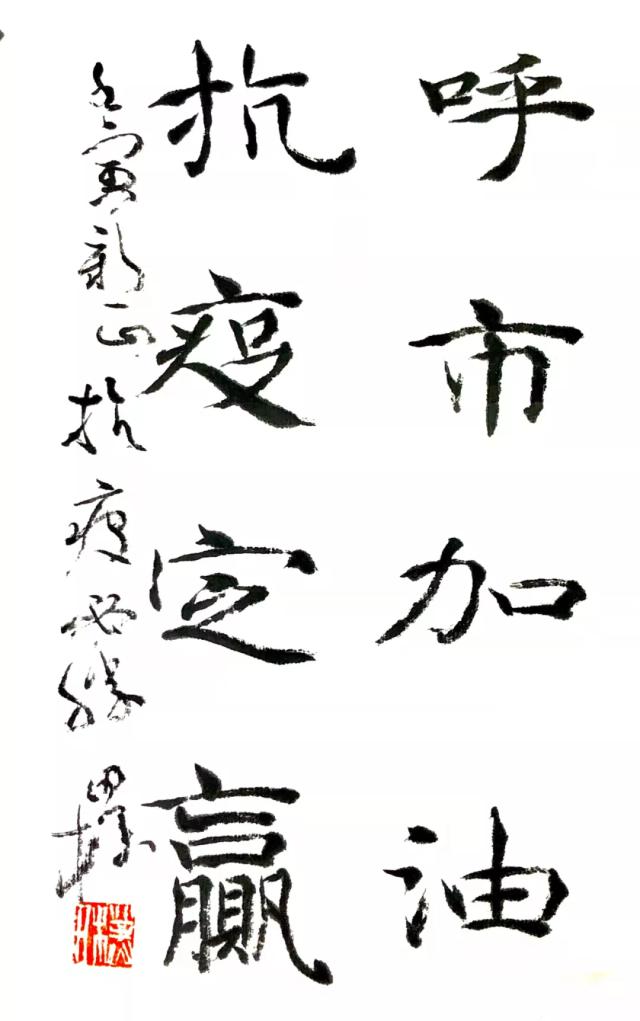 呼市加油
抗疫定贏
壬寅新正抗疫必勝